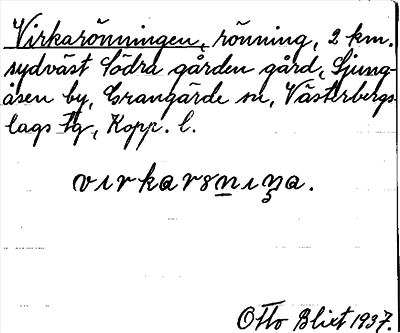 Virkarönningen, rönning, 2 km.
sydväst Södra gården gård, Ljung-
åsen by, Grangärde sn, Västerbergs-
lags Fg, Kopp. l.
virkarɷniŋa.
Otto Blixt 1937.